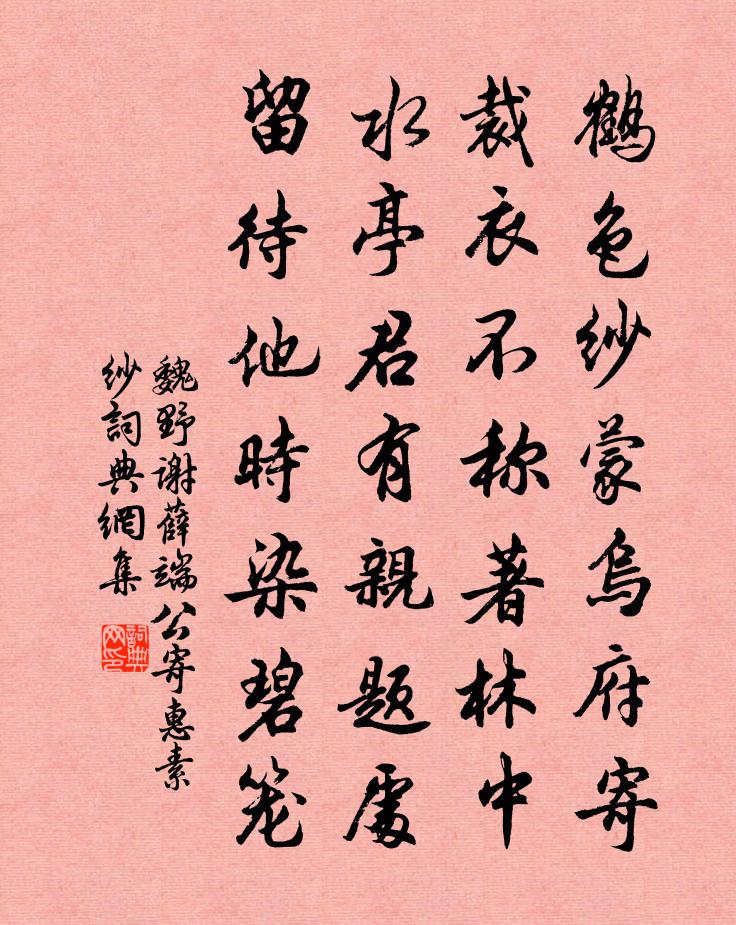 鶴色紗蒙烏府寄
裁衣不称著林中
水亭君有親题處
留待他時染碧笼
魏野谢薛端公寄惠素
紗詞典網集
詞典网印